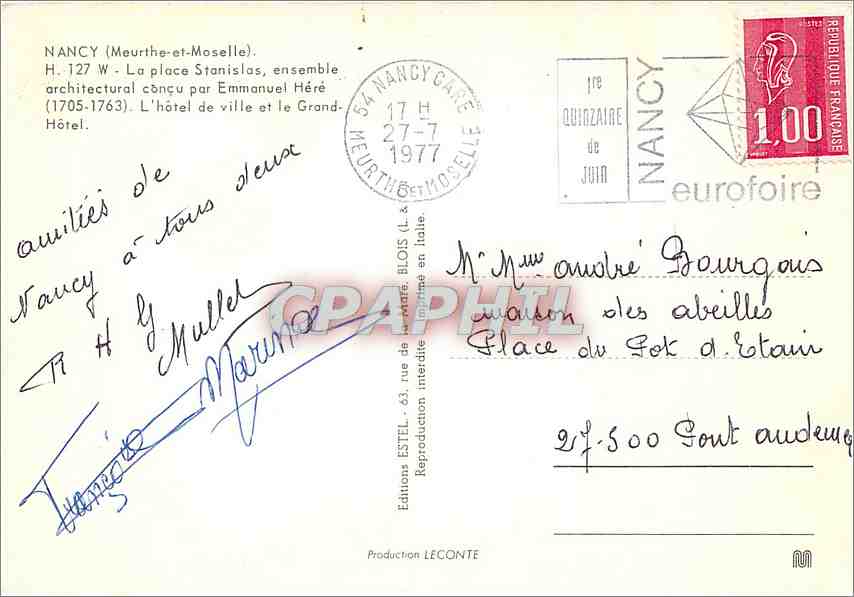 NANCY (Meurthe-et-Moselle).
H. 127 W - La place Stanislas, ensemble
architectural conçu par Emmanuel Héré
(1705-1763). L'hôtel de ville et le Grand-
Hôtel.
54 NANCY GARE
17 H
27-7
1977
MEURTHE-ET-MOSELLE
1re
QUINZAINE
de
JUIN
NANCY
eurofoire
POSTES
REPUBLIQUE FRANÇAISE
1,00
amitiés de
Nancy à tous deux
R H G
Muller
Françoise Marina
CPAPHIL
Editions ESTEL - 63, rue de la Mare, BLOIS (L. &
Reproduction interdite - Imprimé en Italie.
Mr Mme andré Bourgois
maison des abeilles
Place du Pot d'Etain
27-500 Pont audemer
Production LECONTE